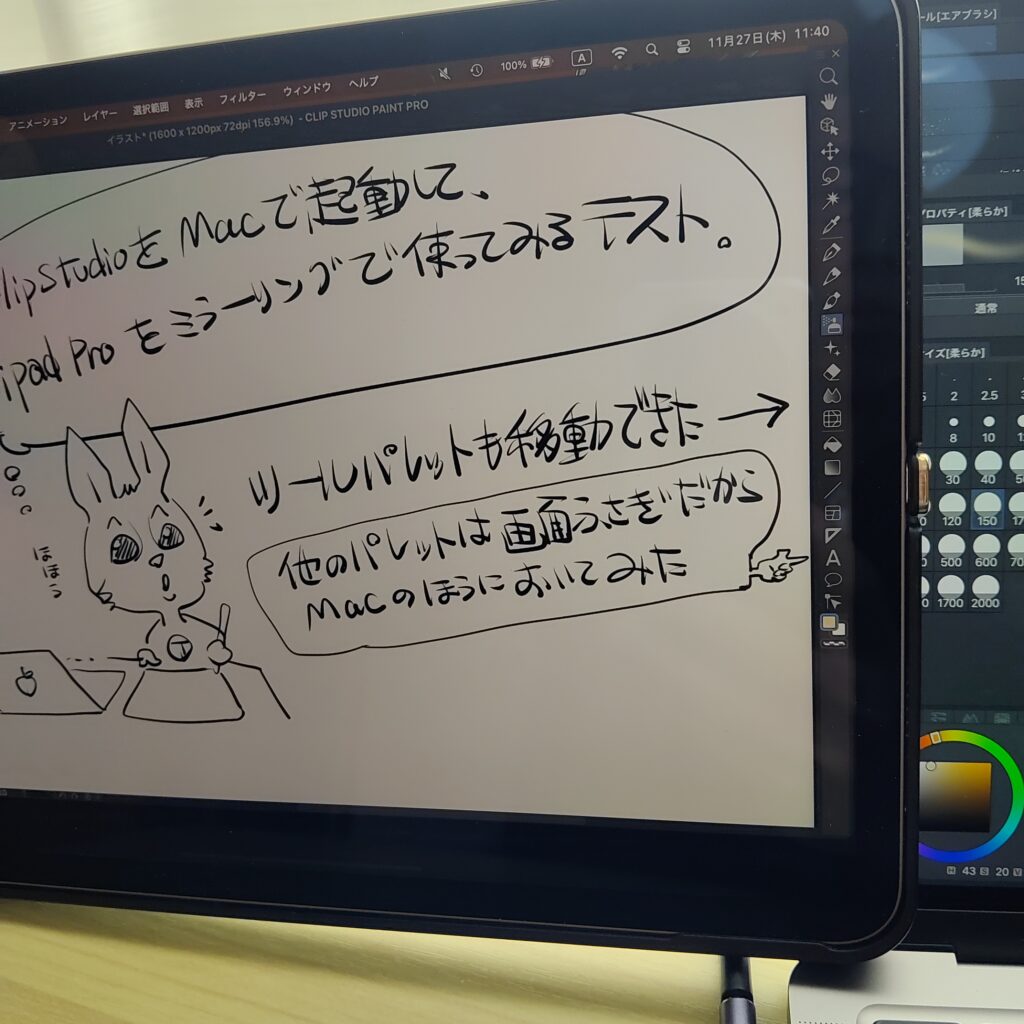 11月27日(木) 11:40
100%
A
アニメーション レイヤー 選択範囲 表示 フィルター ウィンドウ ヘルプ
イラスト* (1600 x 1200px 72dpi 156.9%) - CLIP STUDIO PAINT PRO
lipstudioをMacで起動して、
ipad Proをミラーリングで使ってみるテスト。
ツールパレットも移動できた→
他のパレットは画面ふさぎだから
Macのほうにおいてみた
ほほう
ール[エアブラシ]
プロパティ[柔らか]
通常
イズ[柔らか]
2 2.5
8 10
30 40
120 150
500 600
1700 2000
H 43 S 20 V